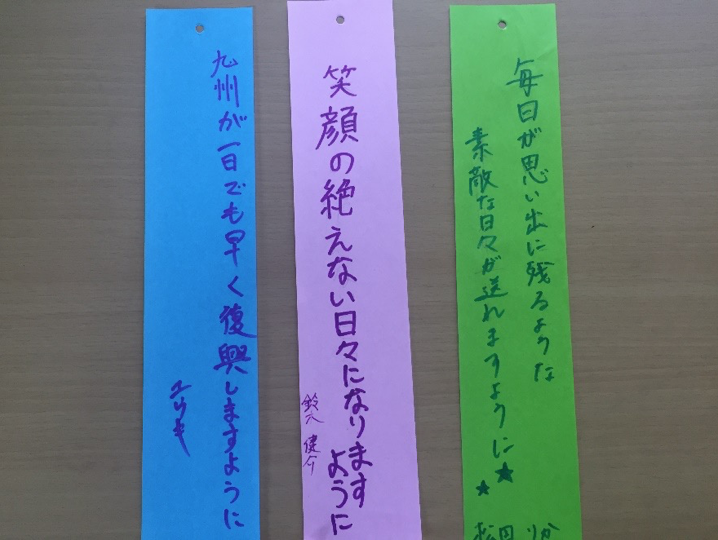 九州が一日でも早く復興しますように
笑顔の絶えない日々になります
ように
鈴木 健介
毎日が思い出に残るような
素敵な日々が送れますように★
★
松田 りか